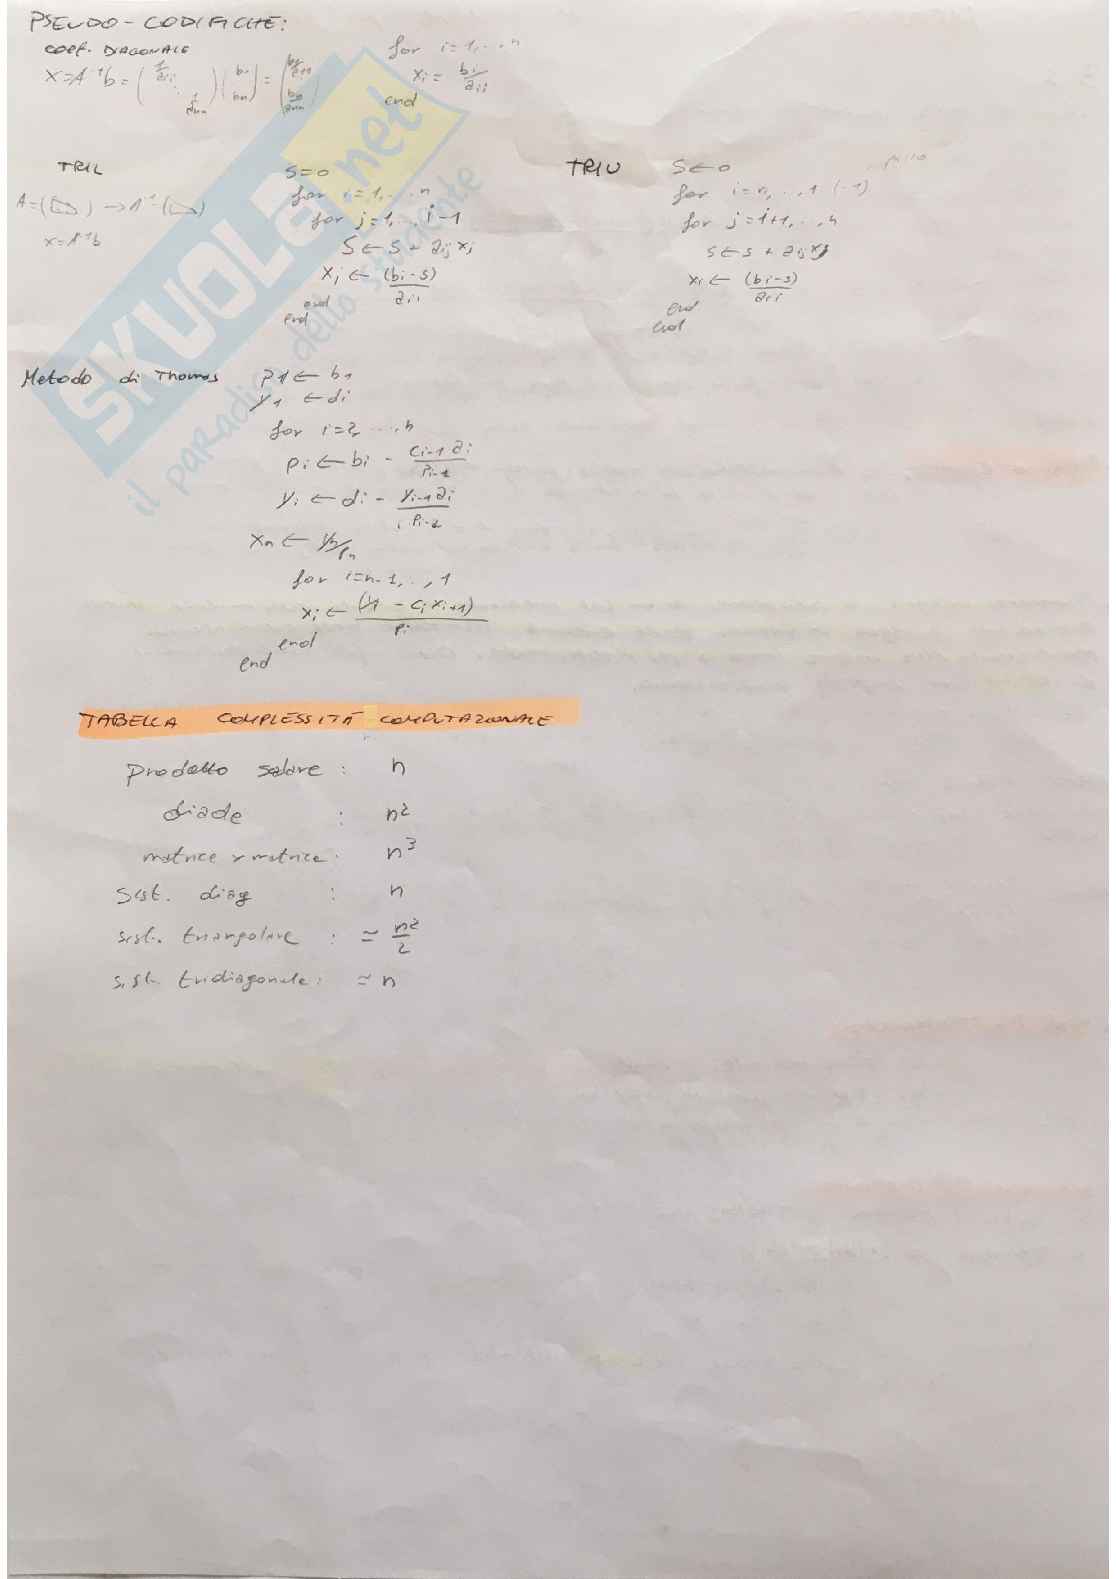 PSEUDO-CODIFICHE:
COEF. DIAGONALE
X=A⁻¹b = (1/aii ⋱ 1/ann)(b1 bn) = (b1/a11 bn/ann)
for i=1,..,n
xi = bi/aii
end
TRIL
A=( ) → A⁻¹ ( )
x=A⁻¹b
S=0
for i=1,..,n
for j=1,..,i-1
S ← S + aij xj
xi ← (bi-s)/aii
end
end
TRIU
S←0
for i=n,..,1 (-1)
for j=i+1,..,n
s←s + aij xj
xi ← (bi-s)/aii
end
end
Metodo di Thomas
p1 ← b1
y1 ← di
for i=2, ...,n
pi ← bi - ci-1 ai/pi-1
yi ← di - yi-1 ai/pi-1
xn ← yn/pn
for i=n-1,..,1
xi ← (yi - ci xi+1)/pi
end
end
TABELLA COMPLESSITÀ COMPUTAZIONALE
prodotto scalare : n
diade : n²
matrice x matrice : n³
Sist. diag : n
sist. triangolare : ≃ n²/2
sist. tridiagonale : ≃ n
SKUOLA.net
il paradiso dello studente